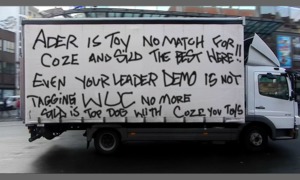 ADER IS TOY NO MATCH FOR
COZE AND SILD THE BEST HERE!!
EVEN YOUR LEADER DEMO IS NOT
TAGGING WUC NO MORE
SILD IS TOP DOG WITH COZE YOU TOYS